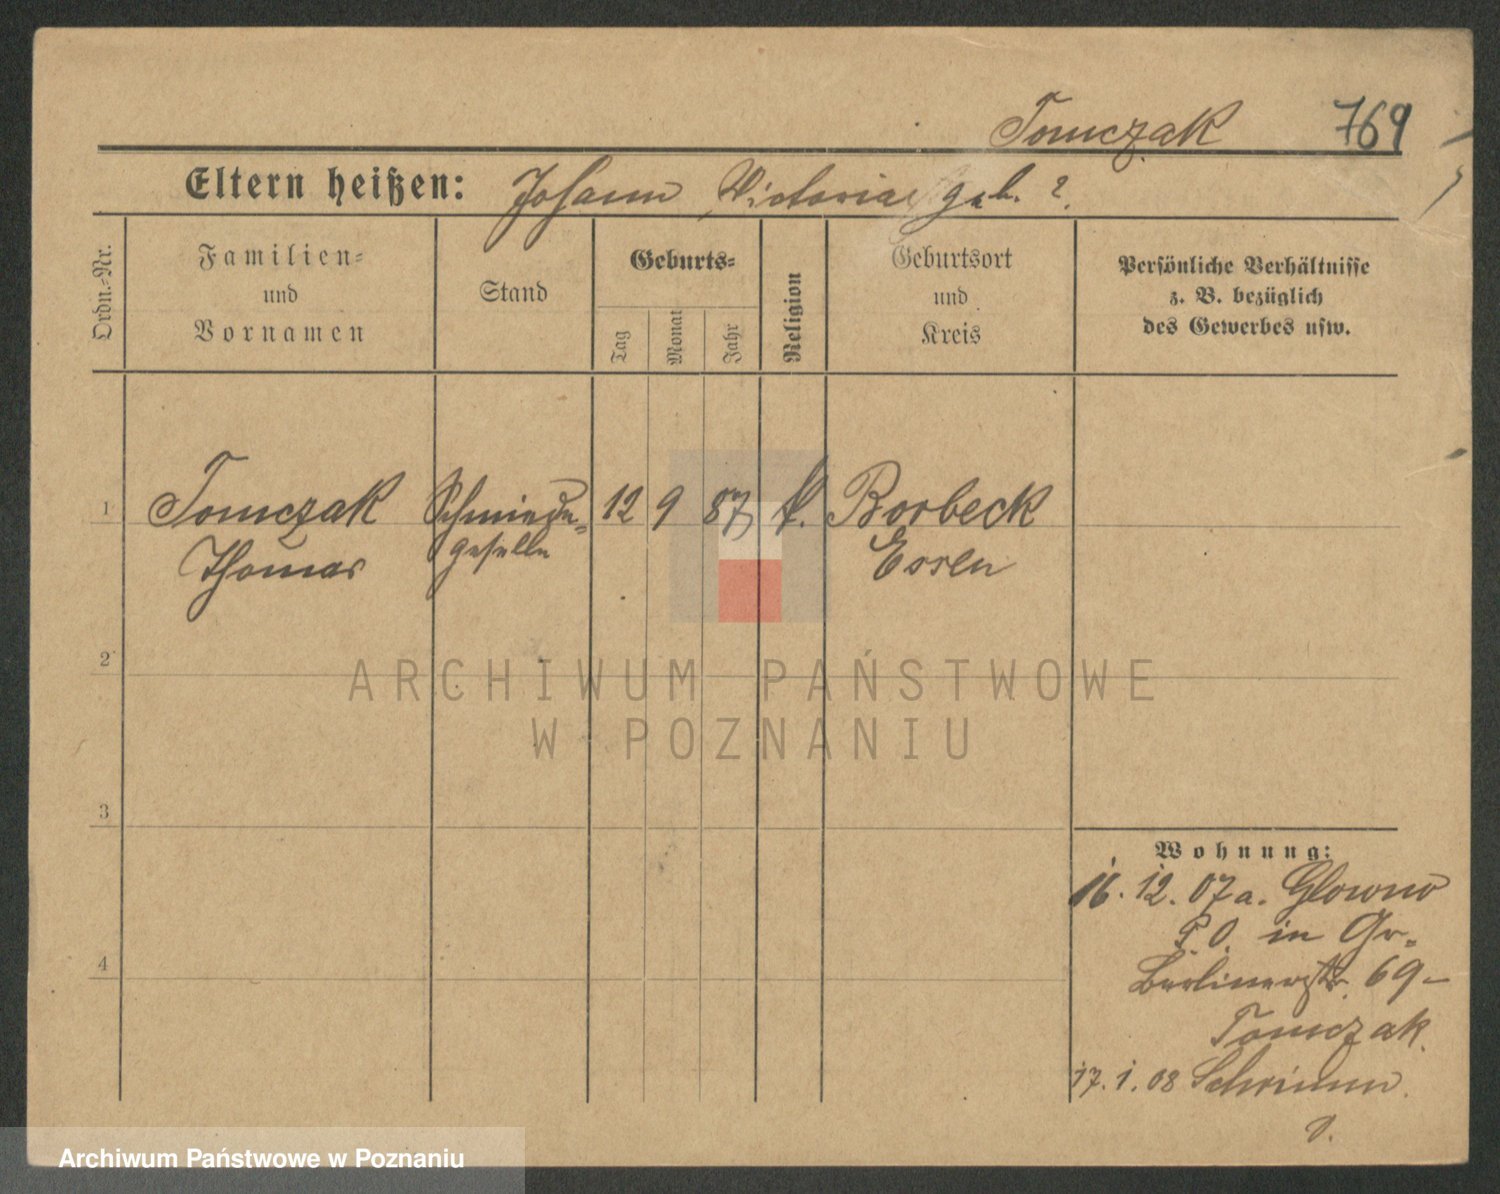 Tomczak 769
Eltern heißen: Johann Victoria geb. ?
Ordn.-Nr.
Familien-
und
Vornamen
Stand
Geburts-
Tag
Monat
Jahr
Religion
Geburtsort
und
Kreis
Persönliche Verhältnisse
z. B. bezüglich
des Gewerbes usw.
1 Tomczak Schmiede- 12 9 87 k. Borbeck
Thomas geselle Essen
2
ARCHIWUM PAŃSTWOWE
W POZNANIU
3
Wohnung:
16. 12. 07 a. Glowno
P.O. in Gr.
4
Berlinerstr. 69-
Tomczak.
17. 1. 08 Schrimm.
Archiwum Państwowe w Poznaniu